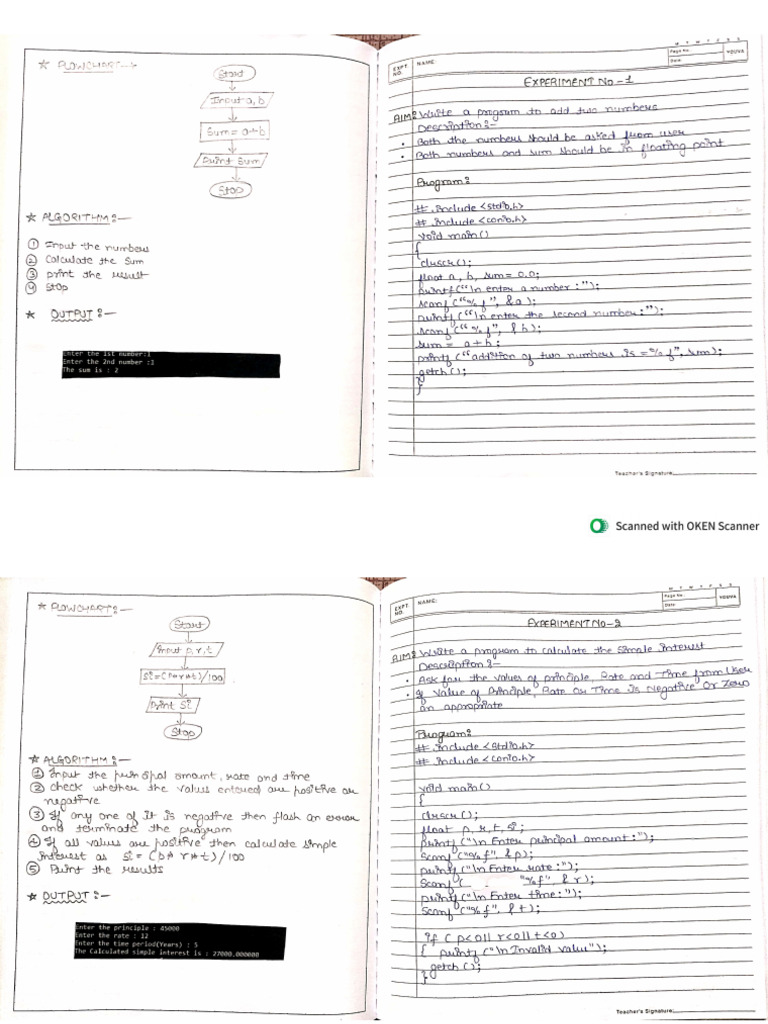 * FLOWCHART :->
Start
Input a, b
Sum = a+b
print sum
Stop
* ALGORITHM :—
① Input the numbers
② Calculate the sum
③ print the result
④ Stop
* OUTPUT :—
Enter the 1st number:1
Enter the 2nd number :1
The sum is : 2
M T W T F S S
EXPT. NO.
NAME:
Page No.
Date:
YOUVA
EXPERIMENT NO-1
AIM: Write a program to add two numbers
Description :-
• Both the numbers should be asked from user
• Both numbers and sum should be in floating point
Program :
# include <stdio.h>
# include <conio.h>
void main()
{
clrscr();
float a, b, sum = 0.0;
printf("\n enter a number :");
scanf ("% f", &a);
printf("\n enter the second number:");
scanf ("% f", & b);
sum = a + b;
printf ("addition of two numbers is = % f", sum);
getch ();
}
Teacher's Signature:
Scanned with OKEN Scanner
* FLOWCHART :—
Start
Input p, r, t
Si = (p*r*t)/100
Print Si
Stop
* ALGORITHM :—
① Input the principal amount, rate and time
② check whether the values entered are positive or
negative
③ If any one of it is negative then flash an error
and terminate the program
④ If all values are positive then calculate simple
interest as Si = (p* r*t)/100
⑤ Print the results
* OUTPUT :—
Enter the principle : 45000
Enter the rate : 12
Enter the time period(Years) : 5
The Calculated simple interest is : 27000.000000
M T W T F S S
EXPT. NO.
NAME:
Page No.
Date:
YOUVA
EXPERIMENT NO-2
AIM: Write a program to calculate the Simple Interest
Description :-
• Ask for the values of principle, Rate and Time from User
• If Value of Principle, Rate or Time is Negative Or Zero
an appropriate
Program :
# include <stdio.h>
# include <conio.h>
void main()
{
clrscr();
float p, r, t, si;
printf ("\n Enter principal amount:");
Scanf ("% f", & p);
printf ("\n Enter rate:");
Scanf ( "% f", & r);
printf ("\n Enter time:");
Scanf ("% f", & t);
if ( p<0|| r<0|| t<0)
{ printf ("\n Invalid value");
getch ();
}
Teacher's Signature: